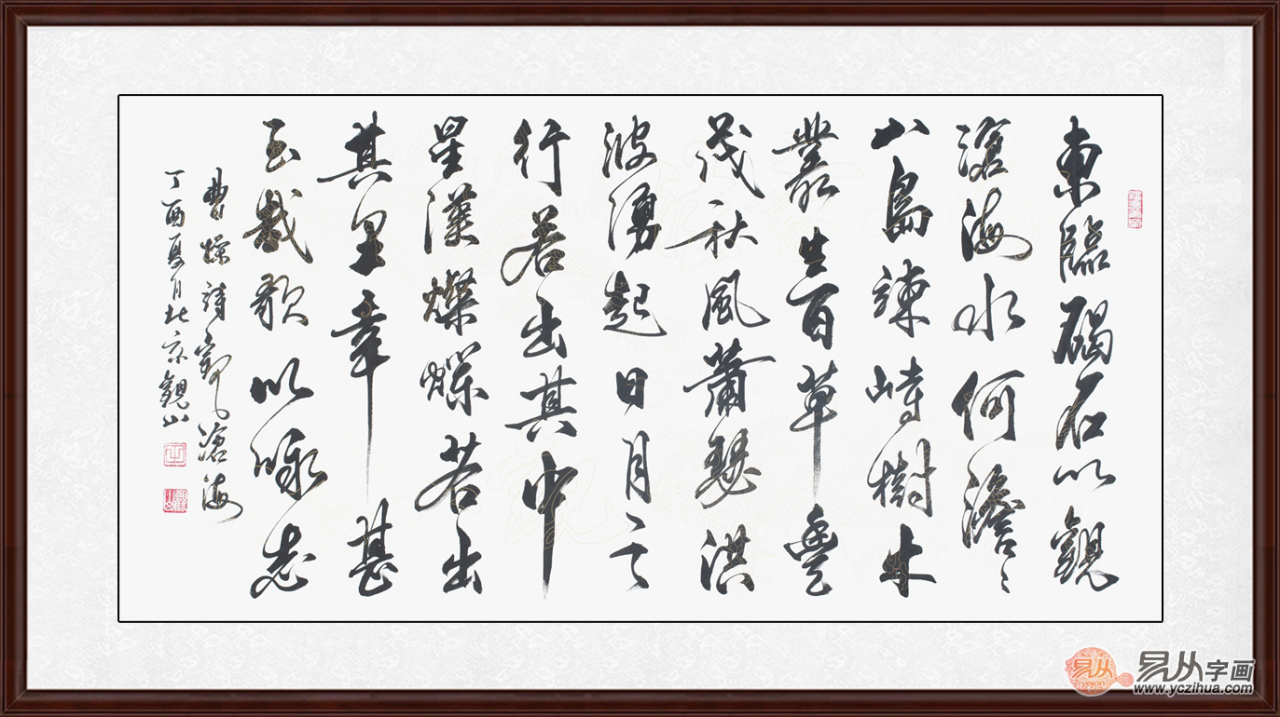 東臨碣石以觀
滄海水何澹〻
山島竦峙樹木
叢生百草豐
茂秋風蕭瑟洪
波湧起日月之
行若出其中
星漢燦爛若出
其里幸甚
至哉歌以咏志
曹操詩觀滄海
丁酉夏月北京觀山
易从字画
www.yczihua.com